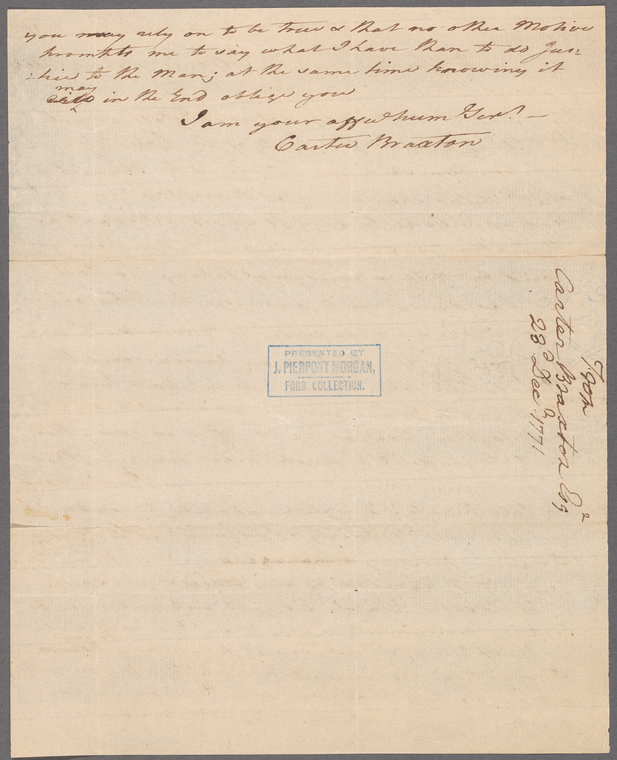 you may rely on to be true & that no other Motive
prompts me to say what I have than to do Jus-
-tice to the Man; at the same time knowing it
may
in the End oblige you
I am your affe hum Servt.—
Carter Braxton
PRESENTED BY
J. PIERPONT MORGAN,
FORD COLLECTION.
From
Carter Braxton Esqr
23d Decr 1771